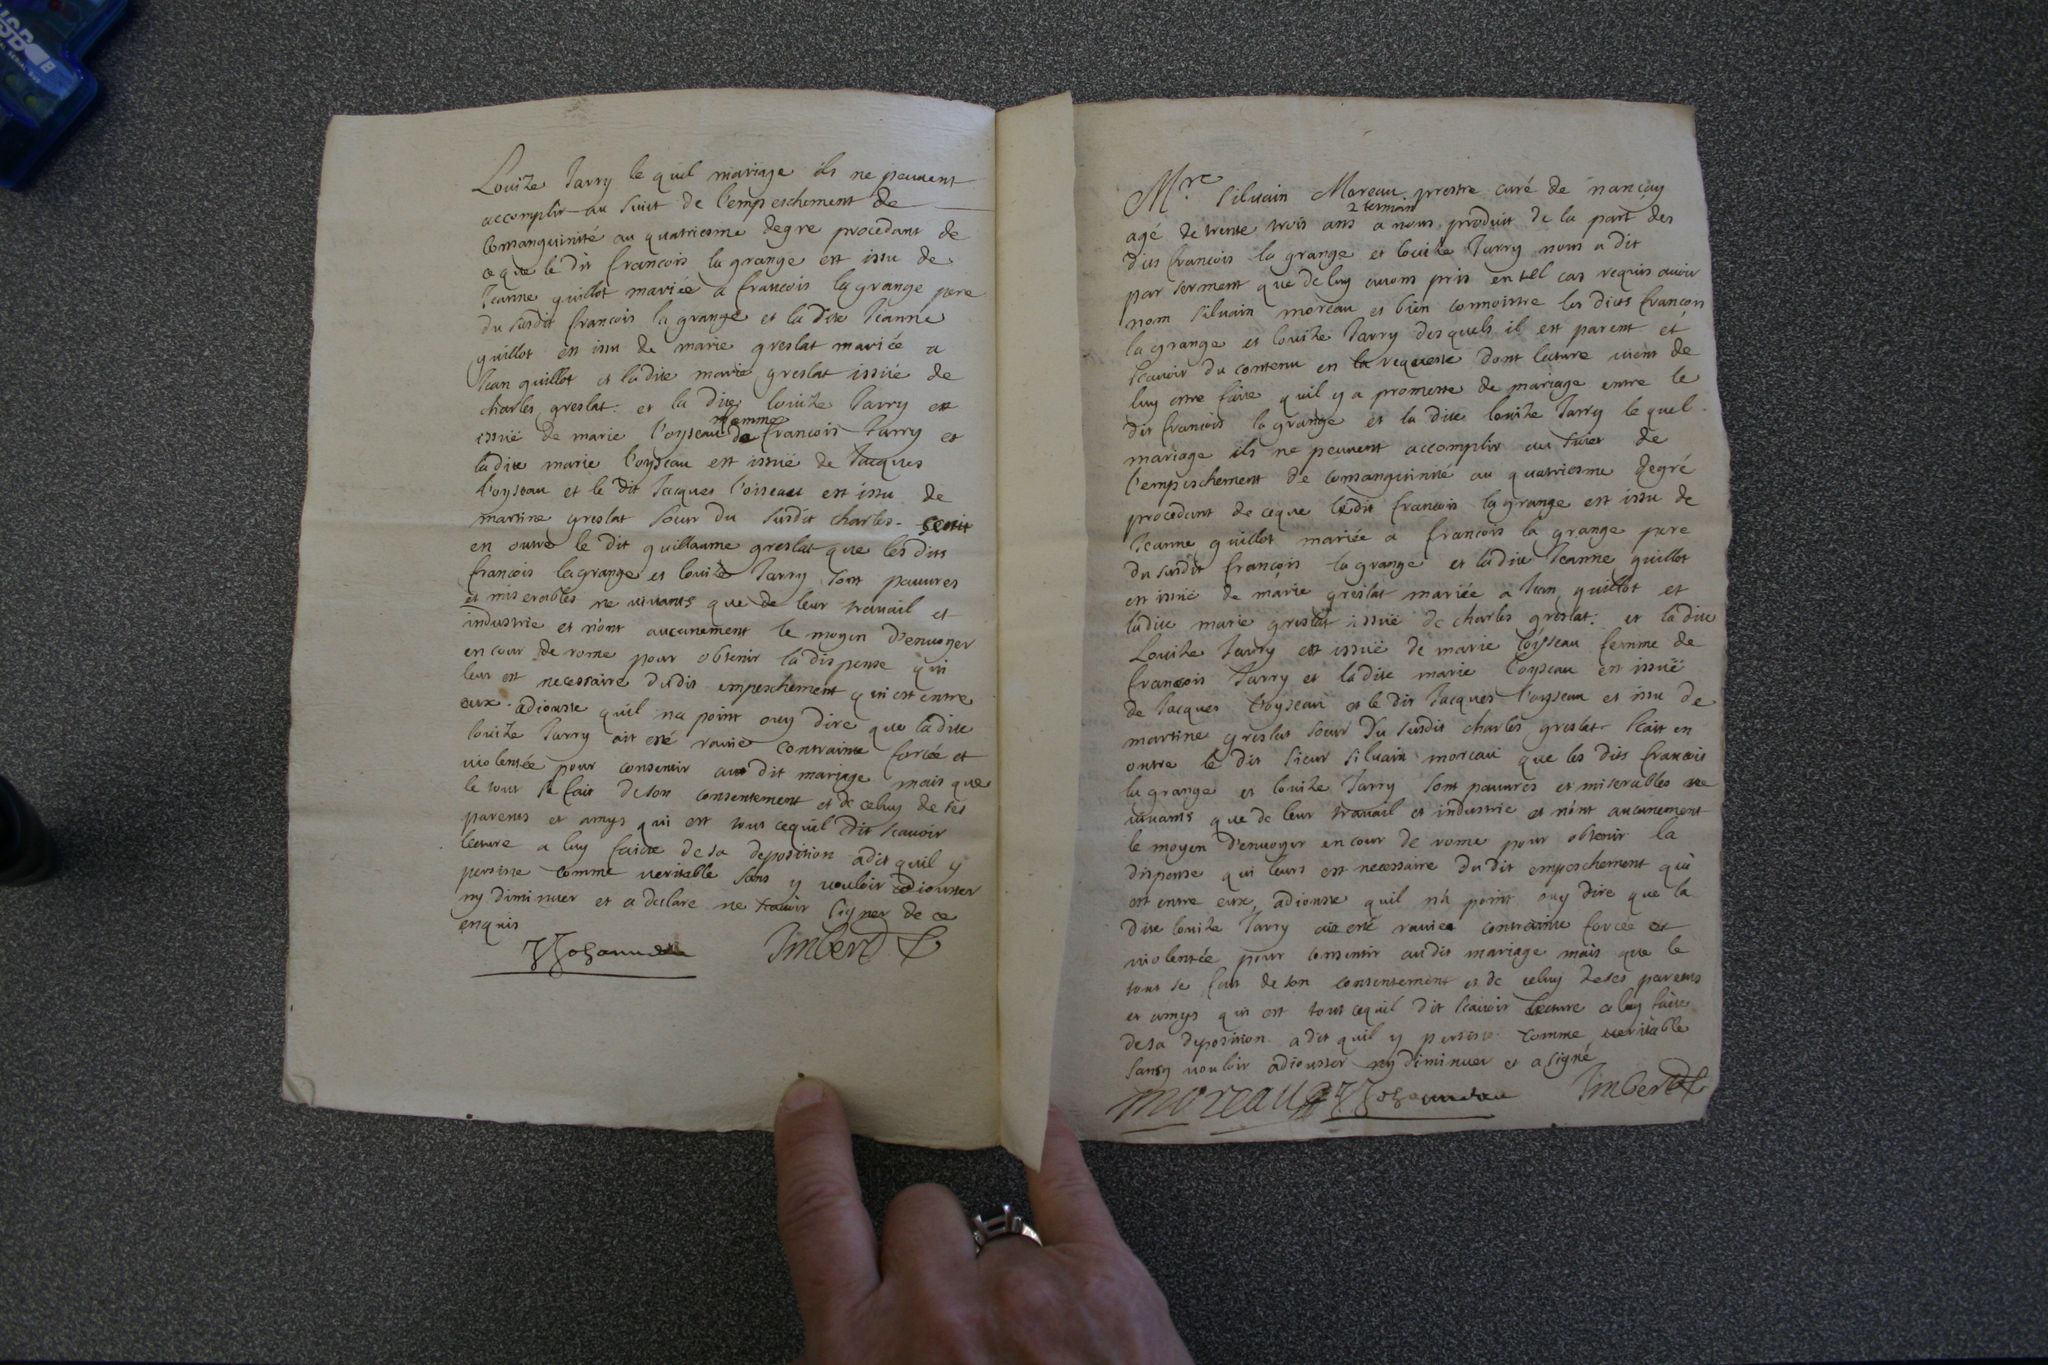 Louize Tarry le quel mariage ils ne peuuent
accomplir au suiet de l'empeschement de
Consanguinité au quatriesme degre procedant de
ce que le dit francois la grange est issu de
Jeanne guillot mariée a francois la grange pere
du susdit francois la grange et la dite Jeanne
guillot est issu de marie greslat mariée a
Jean guillot et la dite marie greslat issuë de
charles greslat. et la dite louize Tarry est
femme
issuë de marie l'oyseau de francois Tarry et
ladite marie l'oyseau est issuë de Jacques
l'oyseau et le dit Jacques l'oiseau est issu de
martine greslat soeur du susdit charles.
en outre le dit guillaume greslat que les dits
francois la grange et louize Tarry sont pauures
et miserables ne viuants que de leur trauail et
industrie et n'ont aucunement le moyen d'enuoyer
en cour de rome pour obtenir la dispense qui
leur est necessaire dudit empeschement qui est entre
eux. adiouste quil na point ouy dire que ladite
louize Tarry ait esté rauie contrainte forcée et
violentée pour consentir au dit mariage mais que
le tout se fait de son consentement et de celuy de ses
parents et amys qui est tout cequil dit scauoir
lecture a luy faicte de sa deposition a dit quil y
persiste comme veritable sans y vouloir adiouster
ny diminuer et a declare ne scauoir signer de ce
enquis
Imbert
Mre Siluain Moreau prestre curé de nançay
2 temoin
agé de trente trois ans a nous produit de la part des
dits francois la grange et louize Tarry nous a dit
par serment que de luy auons pris en tel cas requis auoir
nom Siluain moreau et bien connoistre les dicts francois
la grange et louize Tarry desquels il est parent et
scauoir du contenu en la requeste dont lecture vient de
luy estre faite quil y a promesse de mariage entre le
dit francois la grange et la dite louize Tarry le quel
mariage ils ne peuuent accomplir au suiet de
l'empeschement de consanguinité au quatriesme degré
procedant de ceque ledit francois la grange est issu de
Jeanne guillot mariée a francois la grange pere
du susdit francois la grange et ladite Jeanne guillot
est issuë de marie greslat mariée a Jean guillot et
ladite marie greslat issuë de charles greslat. et la dite
Louize Tarry est issuë de marie loisseau femme de
francois Tarry et ladite marie loyseau est issuë
de Jacques l'oyseau et le dit Jacques l'oyseau est issu de
martine greslat soeur du susdit charles greslat scait en
outre le dit sieur siluain moreau que les dits francois
la grange et louize Tarry sont pauures et miserables ne
viuants que de leur trauail et industrie et n'ont aucunement
le moyen d'enuoyer en cour de rome pour obtenir la
dispense qui leurs est necessaire du dit empeschement qui
est entre eux, adiouste quil n'a point ouy dire que la
dite louize Tarry ait esté rauiee contrainte forcée et
violentée pour consentir audit mariage mais que le
tout se fait de son consentement et de celuy de ses parents
et amys qui est tout cequil dit scauoir lecture a luy faite
de sa deposition a dit quil y persiste comme veritable
sans y vouloir adiouster ny diminuer et a signé
moreau Imbert